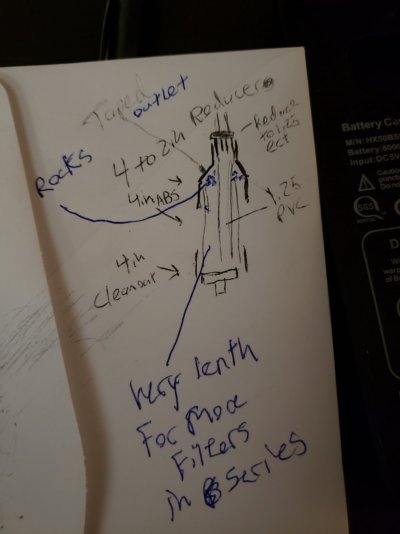 Taped outlet
Reducer
4 to 2in
Reduce
to 1.25
ect
Rocks
4in ABS
.25
PVC
4in
Cleanout
Very lenth
For more
Filters
in Series
Battery Cas
M/N: HX50B5
Battery: 8000
Input: DC5V
Cau
SGS
D